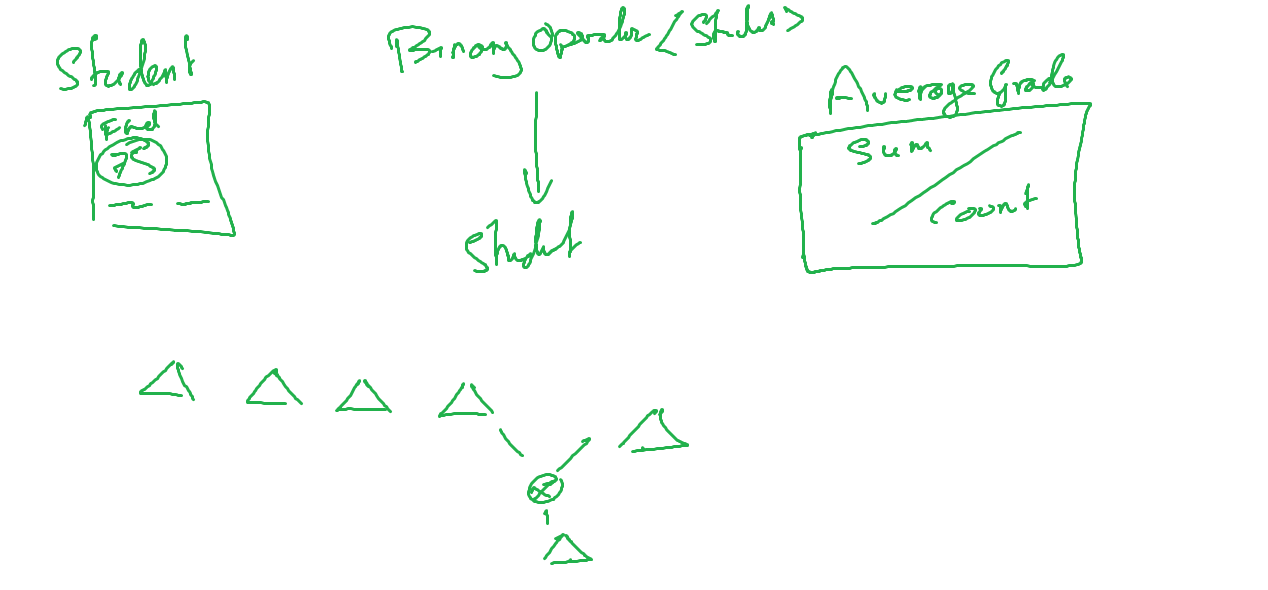 Student
Fred
75
Binary Operator<Student>
Student
Average Grade
Sum
Count